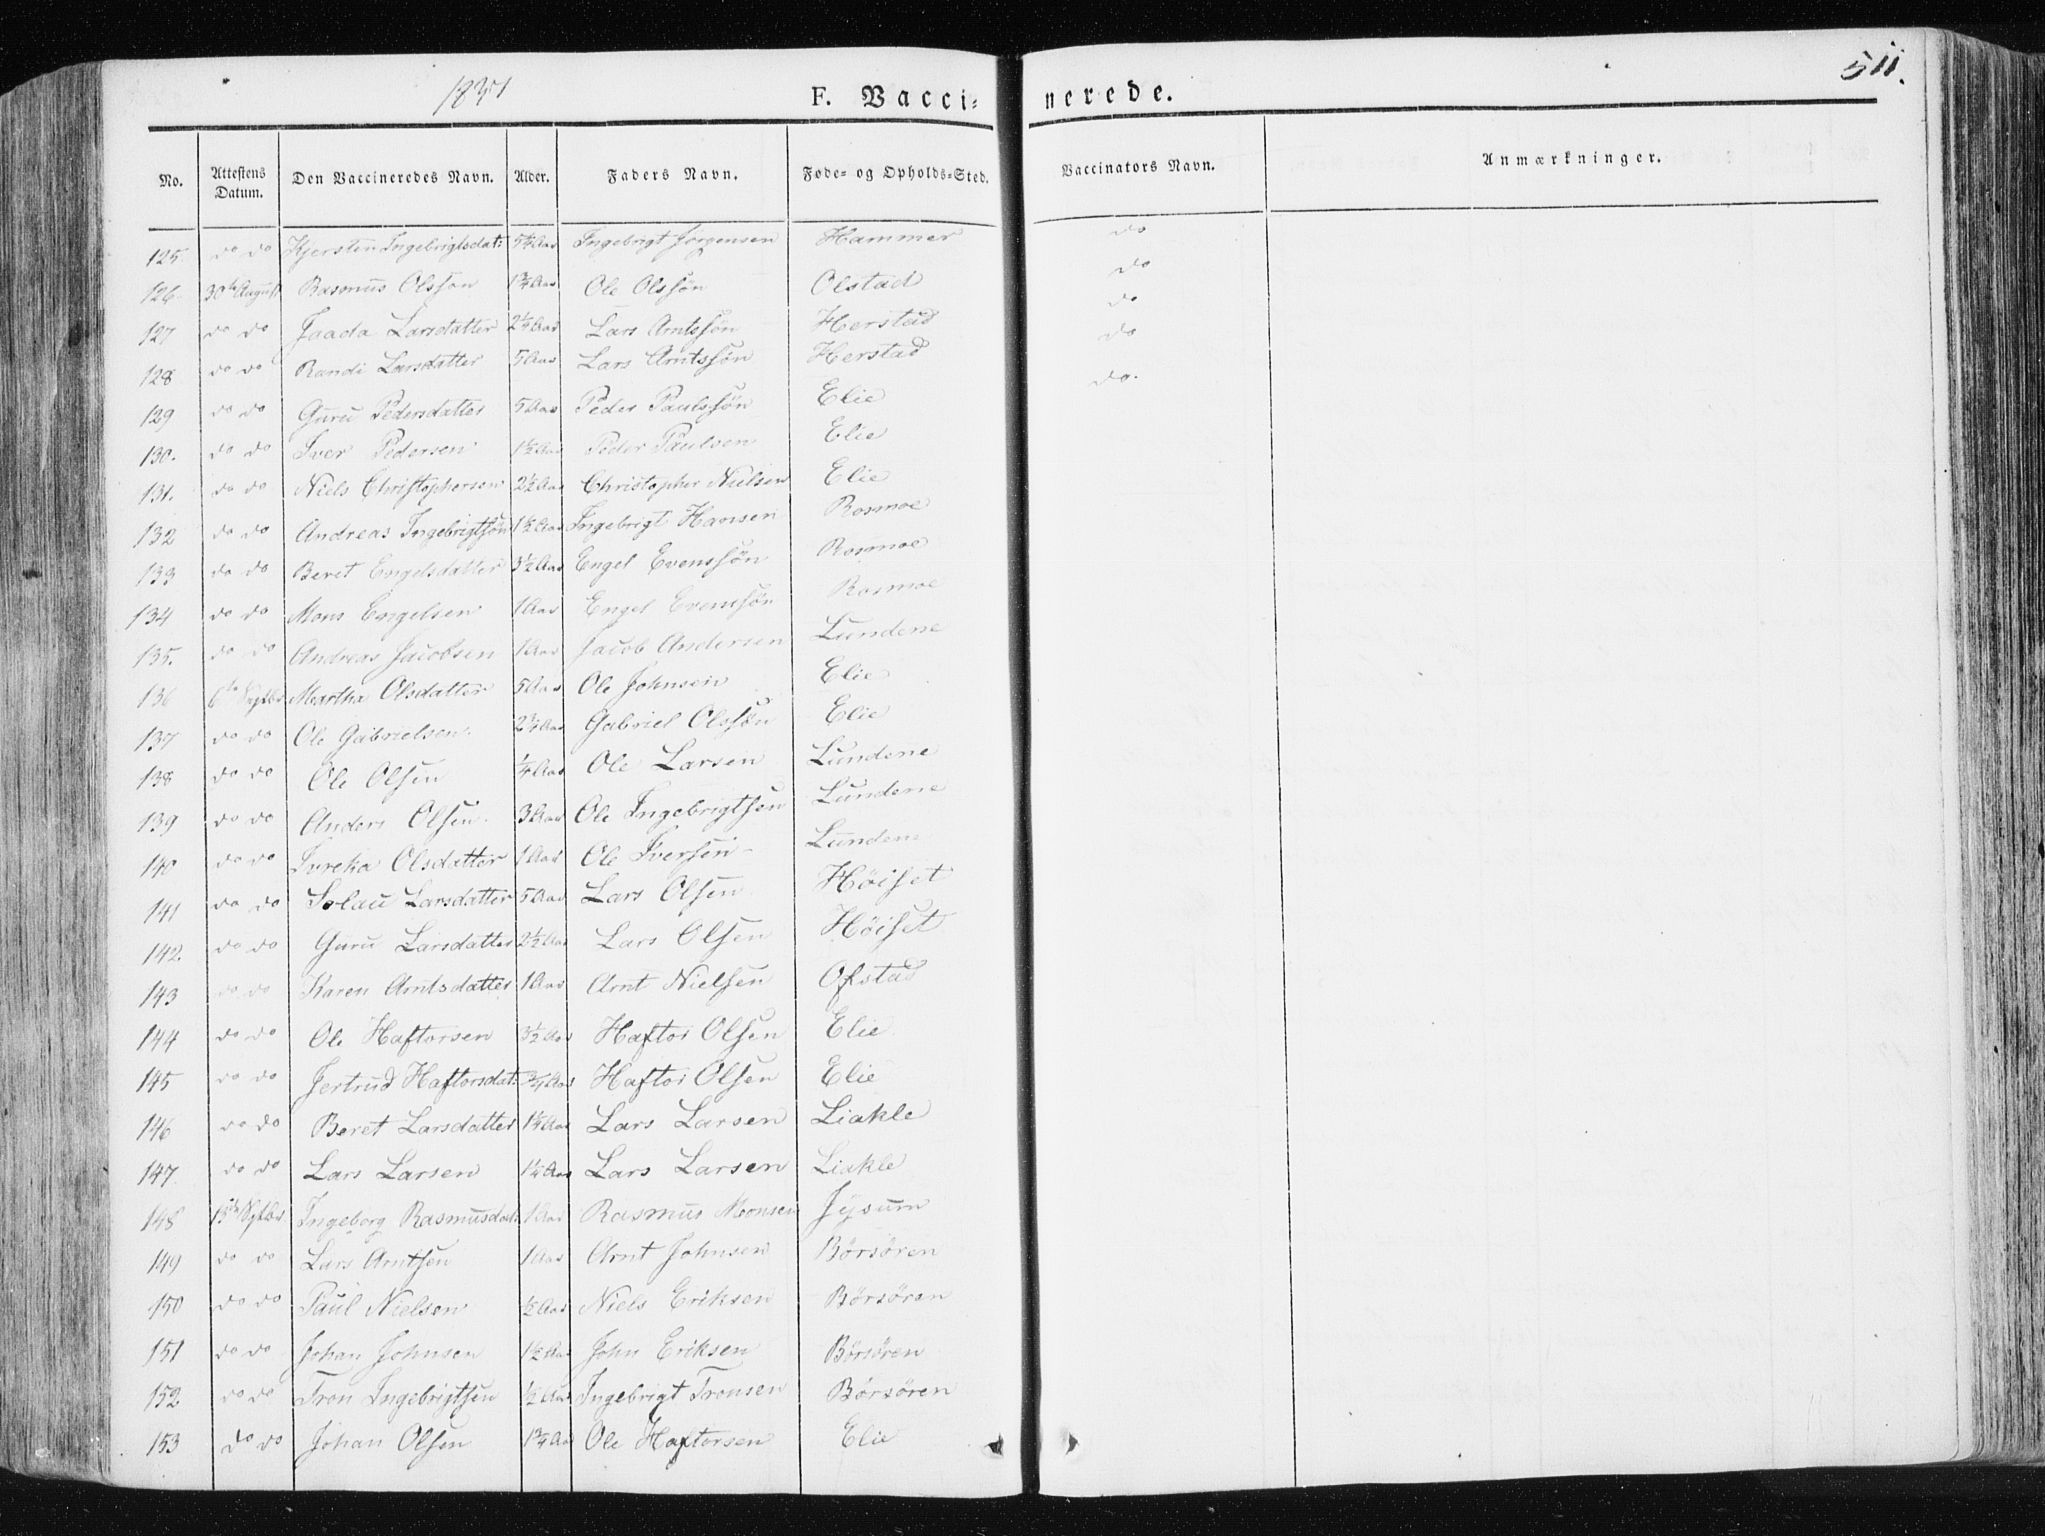 1837
F. Vaccinerede.
511.
No. Attestens Datum. Den Vaccineredes Navn. Alder. Faders Navn. Føde- og Opholds-Sted. Vaccinators Navn. Anmærkninger.
125. do do Kjersten Ingebrigtsdat: 5¼ Aar Ingebrigt Jørgensen Hammer do
126. 30te August Rasmus Olsøn 1¾ Aar Ole Olssøn Olstad do
127 do do Jaada Larsdatter 2¼ Aar Lars Arntssøn Herstad do
128 do do Randi Larsdatter 5 Aar Lars Arntssøn Herstad do
129 do do Guru Pedersdatter 5 Aar Peder Paulssøn Elie do.
130. do do Iver Pedersen 1½ Aar Peder Paulsen Elie
131. do do Niels Christophersen 2½ Aar Christopher Nielsen Elie
132 do do Andreas Ingebrigtsøn 1½ Aar Ingebrigt Hansen Rosmoe
133 do do Beret Engelsdatter 3½ Aar Engel Evenssøn Rosmoe
134 do do Mons Engelsen 1 Aar Engel Evenssøn Rosmoe
135. do do Andreas Jacobsen 1 Aar Jacob Andersen Lundene
136 6te Septbr Martha Olsdatter 5 Aar Ole Johnsen Elie
137 do do Ole Gabrielsen. 2¼ Aar Gabriel Olssøn Elie
138 do do Ole Olsen ¼ Aar Ole Larsen Lundene
139 do do Anders Olsen. 3 Aar Ole Ingebrigtsen Lundene
140 do do Ivreka Olsdatter 1 Aar Ole Iversen Lundene
141 do do Solau Larsdatter 5 Aar Lars Olsen Høiset
142. do do Guru Larsdatter 2½ Aar Lars Olsen Høiset
143 do do Karen Arntsdatter 1 Aar Arnt Nielsen Ofstad
144 do do Ole Haftorsen 3½ Aar Haftor Olsen Elie
145 do do Jertrud Haftorsdat: ¾ Aar Haftor Olsen Elie
146 do do Beret Larsdatter 1¼ Aar Lars Larsen Liakle
147. do do Lars Larsen 1¼ Aar Lars Larsen Liakle
148 15de Septbr Ingeborg Rasmusdat: 1 Aar Rasmus Monsen Jysum
149 do do Lars Arntsen 1 Aar Arnt Johnsen Børsøren
150 do do Paul Nielsen ½ Aar Niels Eriksen Børsøren
151 do do Johan Johnsen 1½ Aar John Eriksen Børsøren
152 do do Tron Ingebrigtsen ½ Aar Ingebrigt Tronsen Børsøren
153 do do Johan Olsen 1¾ Aar Ole Haftorsen Elie